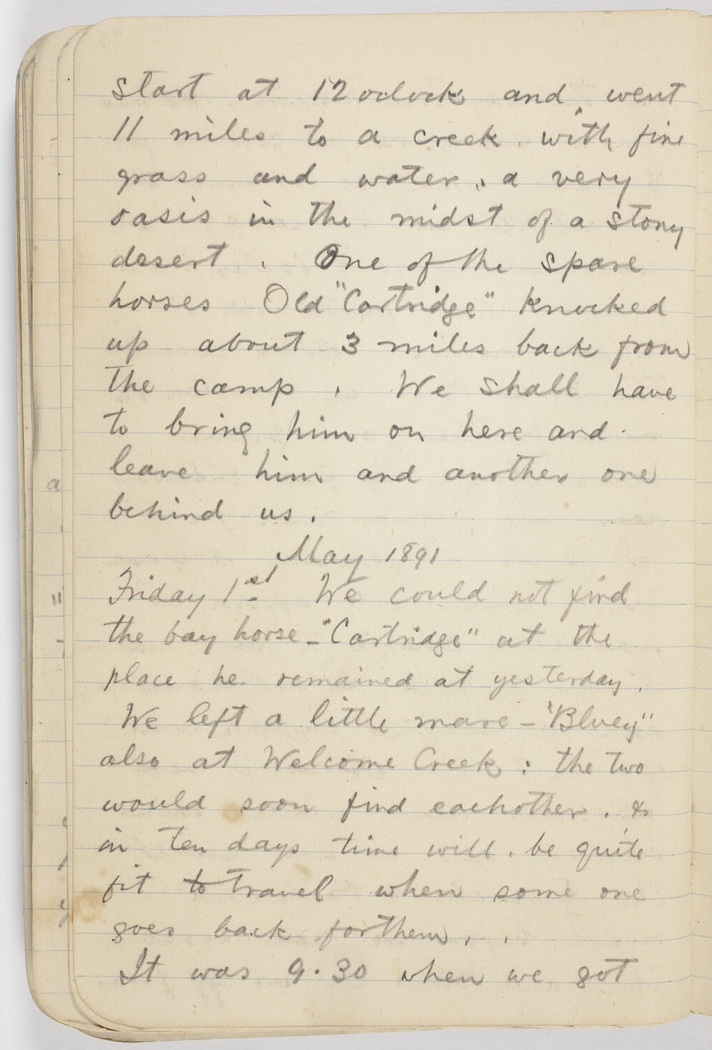 start at 12 oclock and went
11 miles to a creek with fine
grass and water, a very
oasis in the midst of a stony
desert. One of the spare
horses Old "Cartridge" knocked
up about 3 miles back from
the camp. We shall have
to bring him on here and
leave him and another one
behind us.
May 1891
Friday 1st. We could not find
the bay horse - "Cartridge" at the
place he remained at yesterday.
We left a little mare - "Bluey"
also at Welcome Creek: the two
would soon find eachother. &
in ten days time will be quite
fit to travel when some one
goes back for them.
It was 9.30 when we got
a
"
-